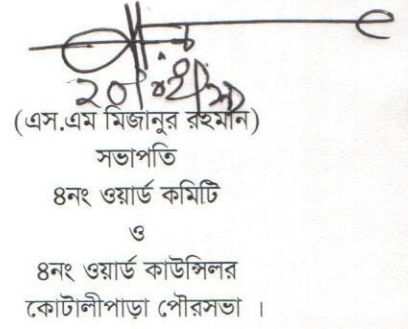 (এস.এম মিজানুর রহমান)
সভাপতি
৪নং ওয়ার্ড কমিটি
ও
৪নং ওয়ার্ড কাউন্সিলর
কোটালীপাড়া পৌরসভা ।